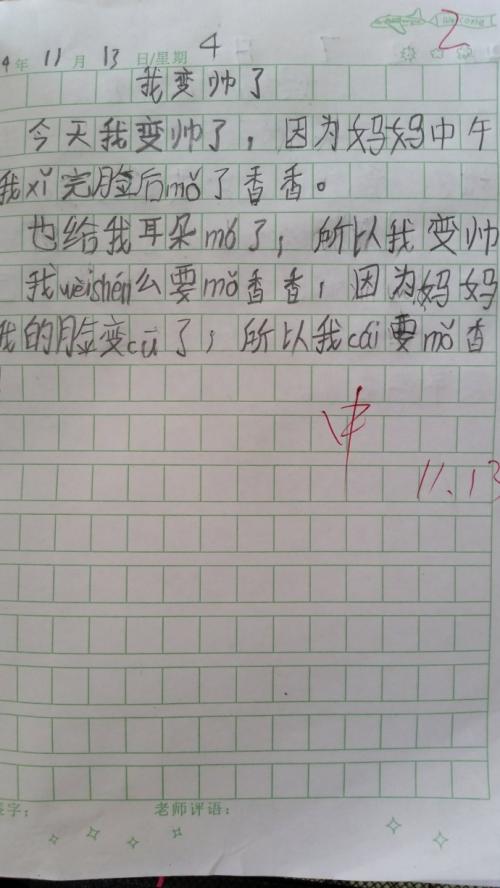 Welcome
2
4年 11月 13日/星期 4
我变帅了
今天我变帅了，因为妈妈中午
我xǐ完脸后mǒ了香香。
也给我耳朵mǒ了，所以我变帅
我wèishén么要mǒ香香，因为妈妈
我的脸变cū了，所以我cái要mǒ香
11.13
字： 老师评语：